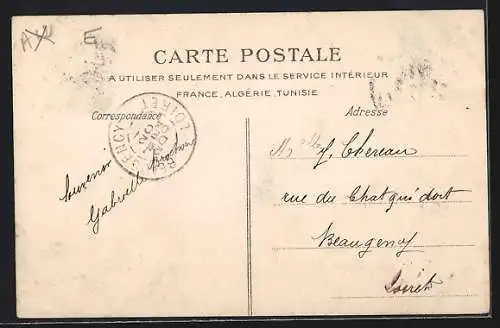 CARTE POSTALE
A UTILISER SEULEMENT DANS LE SERVICE INTÉRIEUR
FRANCE, ALGÉRIE, TUNISIE
Correspondance
Adresse
BEAUGENCY
LOIRET
Souvenir
Gabrielle
Mlle Y. Chereau
rue du Chat qui dort
Beaugency
Loiret